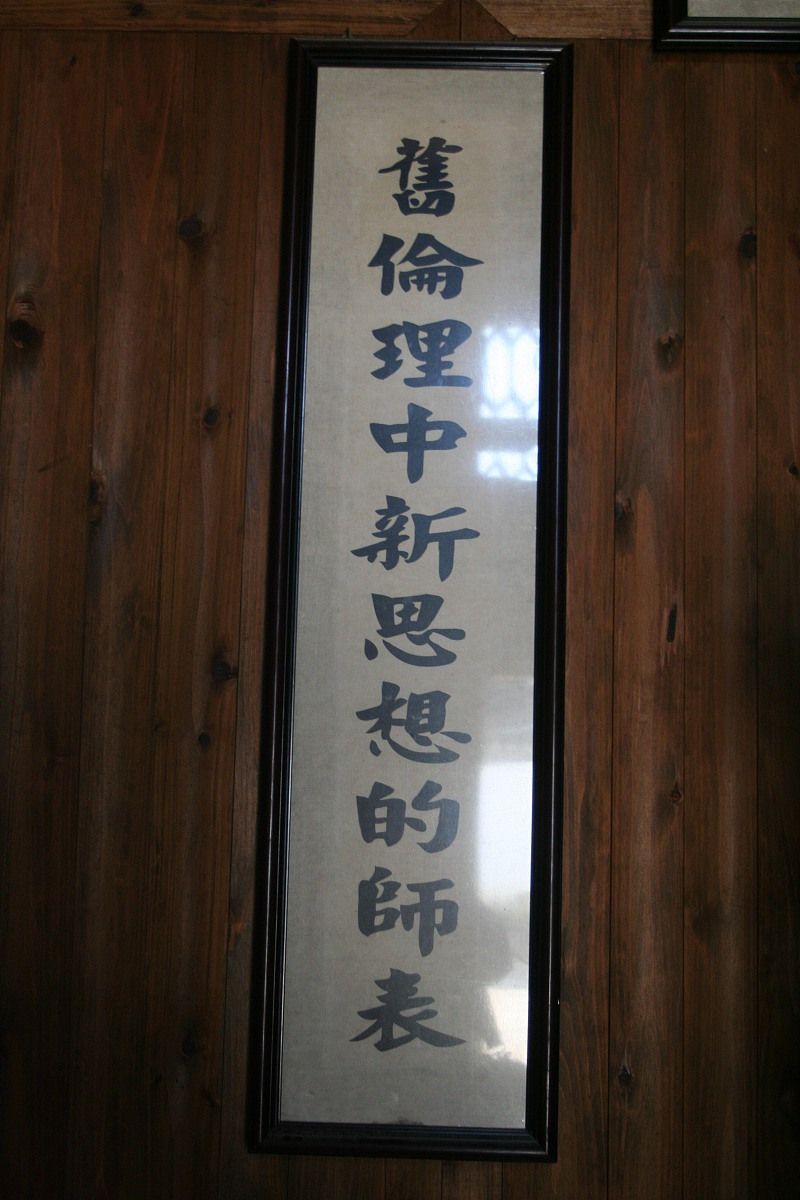 舊倫理中新思想的師表